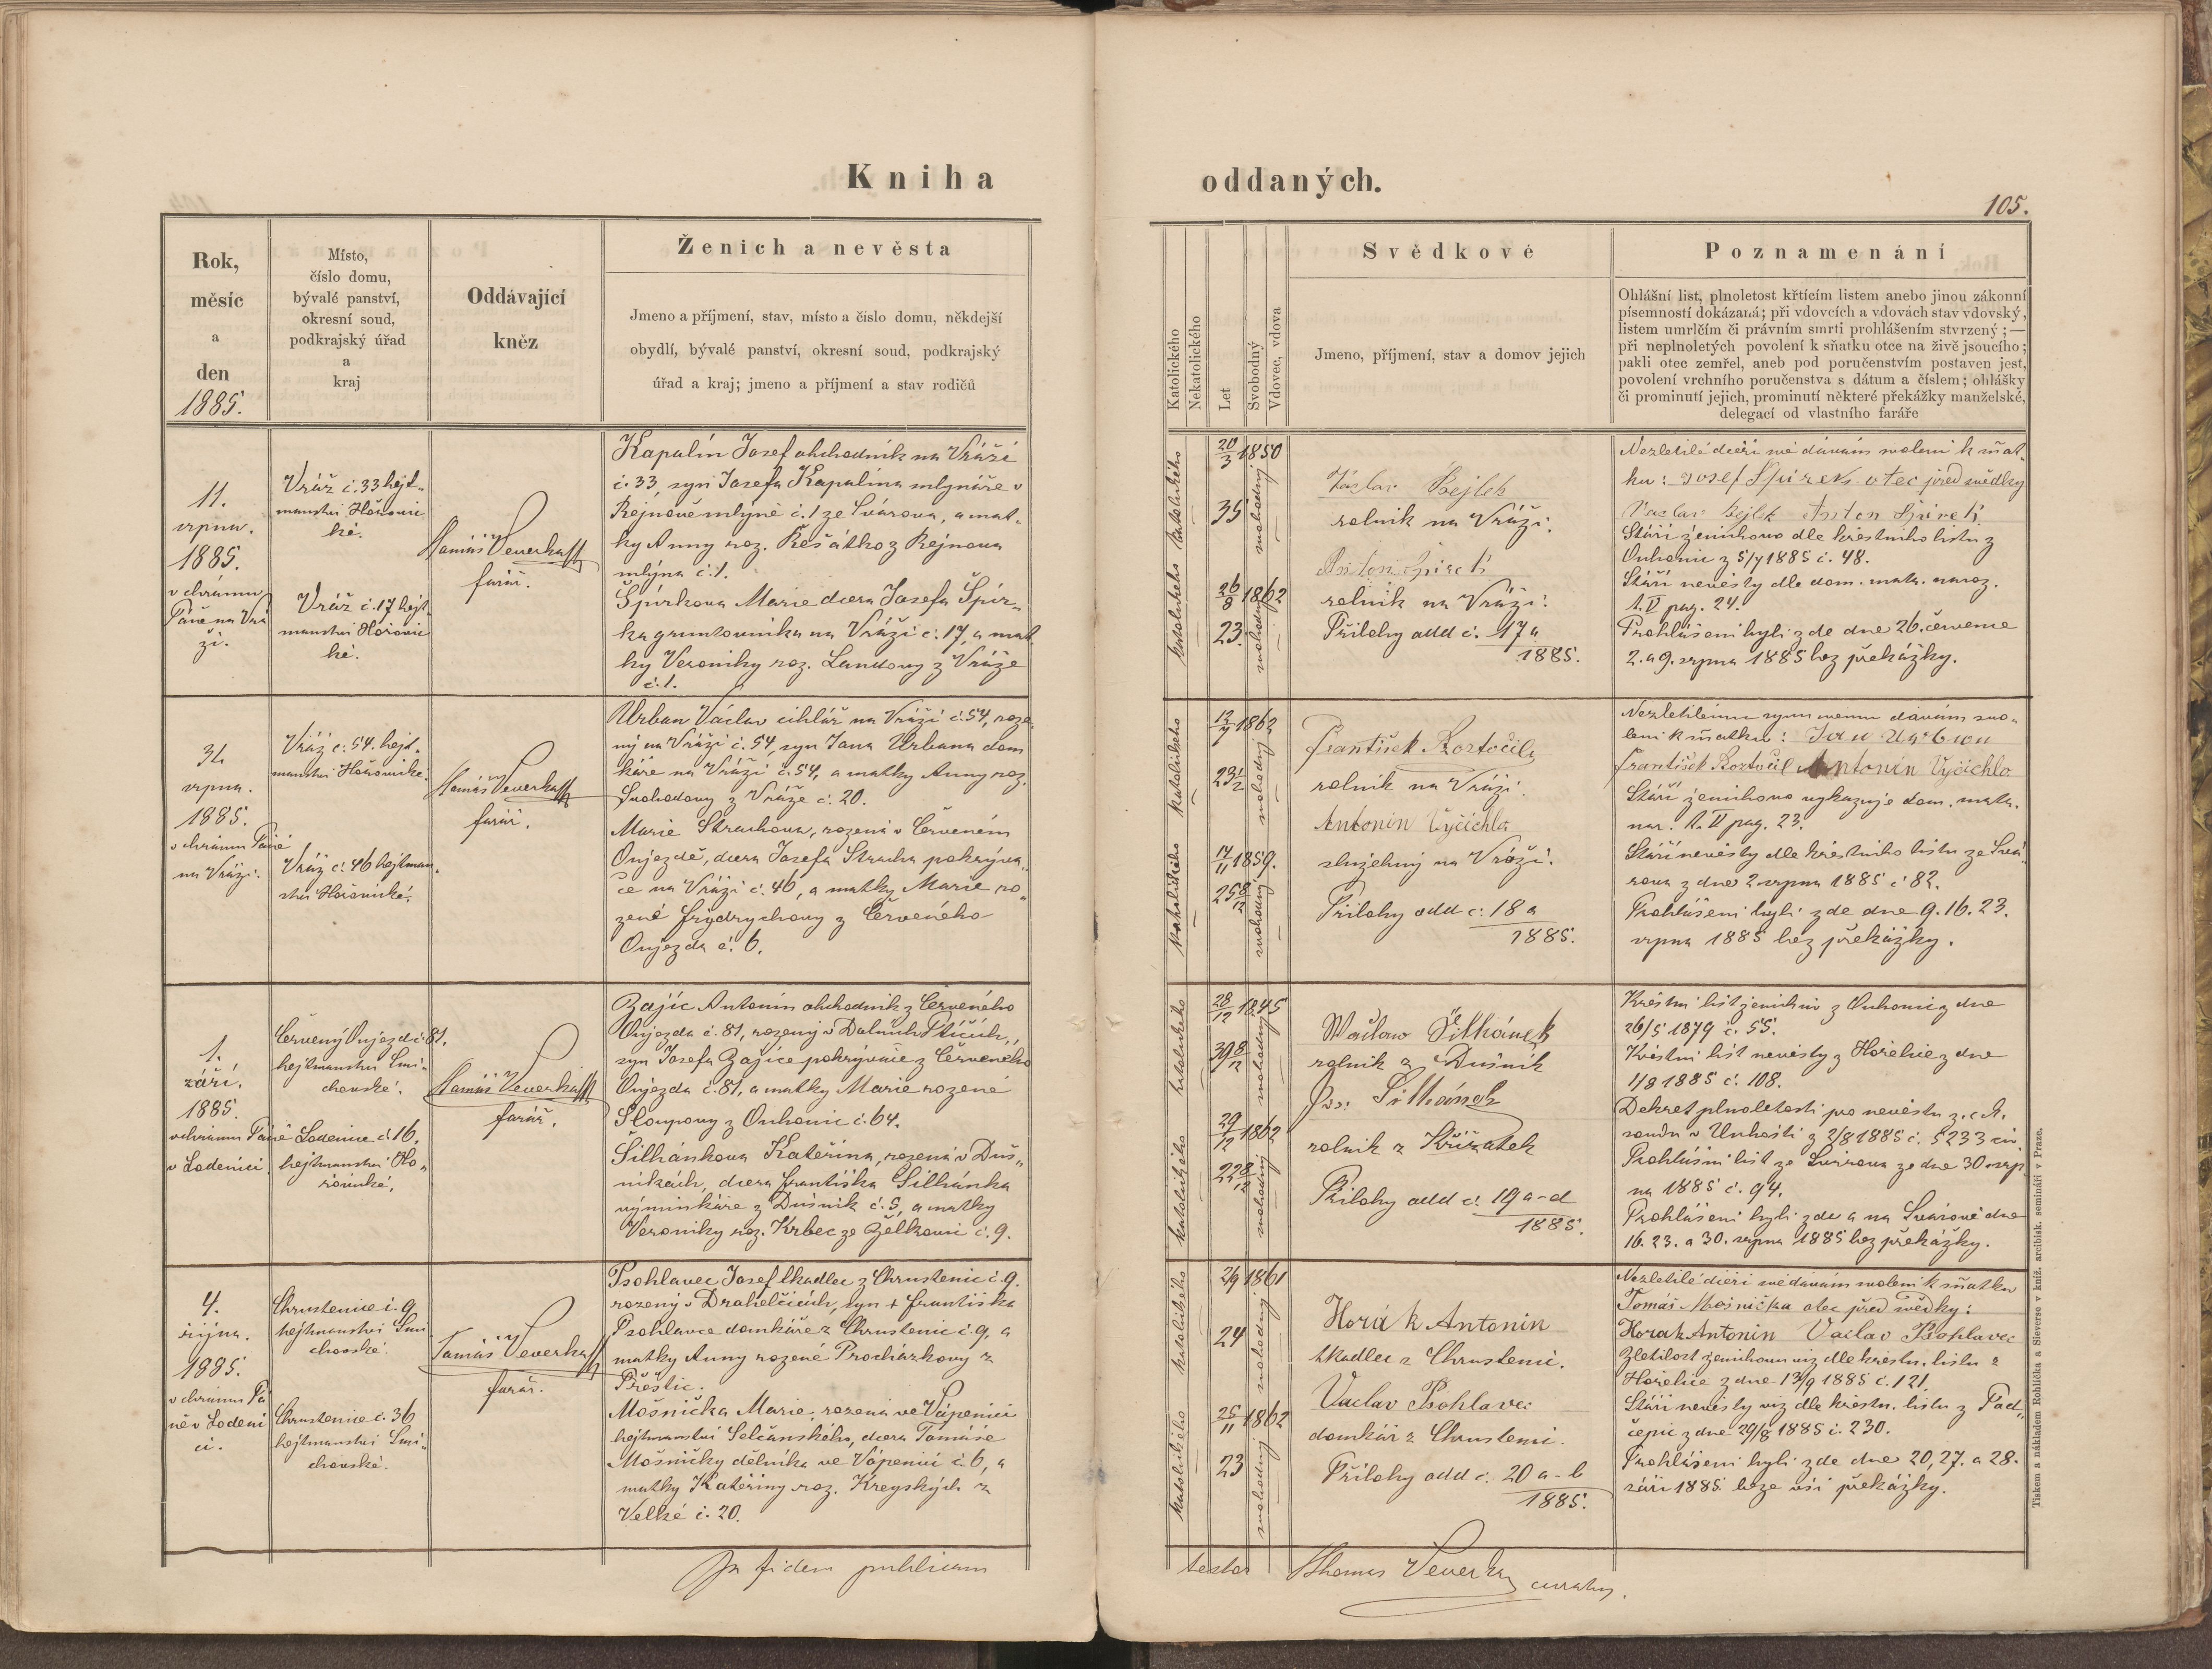 Kniha
oddaných.
105.
Rok,
měsíc
a
den
1885.
Místo,
číslo domu,
bývalé panství,
okresní soud,
podkrajský úřad
a
kraj
Oddávající
kněz
Ženich a nevěsta
Jmeno a příjmení, stav, místo a číslo domu, někdejší
obydlí, bývalé panství, okresní soud, podkrajský
úřad a kraj; jmeno a příjmení a stav rodičů
Katolického
Nekatolického
Let
Svobodný
Vdovec, vdova
Svědkové
Jmeno, příjmení, stav a domov jejich
Poznamenání
Ohlášní list, plnoletost křtícím listem anebo jinou zákonní
písemností dokázaná; při vdovcích a vdovách stav vdovský,
listem umrlčím či právním smrti prohlášením stvrzený; —
při neplnoletých povolení k sňatku otce na živě jsoucího;
pakli otec zemřel, aneb pod poručenstvím postaven jest,
povolení vrchního poručenstva s dátum a číslem; ohlášky
či prominutí jejich, prominutí některé překážky manželské,
delegací od vlastního faráře
11.
srpna.
1885.
v chrámu
Páně na Vrá
ži.
Vráž č. 33 hejt-
manství Hořovic
ké.
Vráž č. 17 hejt
manství Hořovic
ké.
Tomáš Veverka
farář.
Kapalín Josef obchodník na Vráži
č. 33, syn Josefa Kapalína mlynáře v
Rejnově mlýně č. 1 ze Svárova, a mat-
ky Anny roz. Řešátko z Rejnova
mlýna č. 1.
Špírkova Marie dcera Josefa Špír-
ka gruntovníka na Vráži č. 17, a mat
ky Veroniky roz. Landovy z Vráže
č. 1.
katolického
20/3 1850
35
svobodný
katolického
26/8 1862
23.
svobodný
Václav Bejlek
rolník na Vráži.
Anton Špírek
rolník na Vráži.
Přílohy add č. 17 a
1885.
Nezletilé dceři mé dávám svolení k sňat-
ku: Josef Špirek otec před svědky
Vaclav Bejlek Anton Spirek
Stáří ženichovo dle křestního listu z
Ouhonic z 5/7 1885 č. 48.
Stáří nevěsty dle dom. matr. naroz.
t. II pag. 24.
Prohlášeni byli zde dne 26. července
2. a 9. srpna 1885 bez překážky.
31.
srpna.
1885.
v chrámu Páně
na Vráži.
Vráž č. 54. hejt-
manství Hořovické.
Vráž č. 46 hejtman-
ství Hořovické.
Tomáš Veverka
farář.
Urban Václav cihlář na Vráži č. 54, roze-
ný na Vráži č. 54, syn Jana Urbana dom
káře na Vráži č. 54, a matky Anny roz.
Svobodovy z Vráže č. 20.
Marie Strachova, rozená v Červeném
Oujezdě, dcera Josefa Stracha pokrýva-
če na Vráži č. 46, a matky Marie ro-
zené Frydrychovy z Červeného
Oujezda č. 6.
katolického
1862
23 1/2
svobodný
katolického
14/11 1859.
svobodný
František Roztočil
rolník na Vráži.
Antonín Vyčichlo
služebný na Vráži.
Přílohy add č. 18 a
1885.
Nezletilému synu mému dávám svo-
lení k sňatku: Jan Urban
František Roztočil Antonín Vyčichlo
Stáří ženichovo vykazuje dom. matr.
nar. t. II pag. 23.
Stáří nevěsty dle křestního listu ze Svá-
rova z dne 2 srpna 1885 č 82.
Prohlášeni byli zde dne 9. 16. 23.
srpna 1885 bez překážky.
1.
září.
1885.
v chrámu Páně
v Loděnici
Červený Oujezd č. 81.
hejtmanství Smí-
chovské.
Loděnice č. 16.
hejtmanství Ho-
řovické.
Tomáš Veverka
farář.
Zajíc Antonín obchodník z Červeného
Oujezda č. 81, rozený v Dolních
syn Josefa Zajíce pokrývače z Červeného
Oujezda č. 81, a matky Marie rozené
Šloupovy z Ouhonic č. 64.
Šilhánkova Kateřina, rozená v Duš-
níkách, dcera Františka Šilhánka
výminkáře z Dušník č. 5, a matky
Veroniky roz. Krbec ze Želkovic č. 9.
katolického
28/12 1845
39 8/12
svobodný
katolického
29/12 1862
22 8/12
svobodný
Wačlaw Šilhánek
rolník z Dušník
Šilhánek
rolník z Křižatek
Přílohy add č. 19 a-d
1885.
Křestní list ženichův z Ouhonic z dne
26/5 1879 č. 55.
Křestní list nevěsty z Hořelic z dne
1/8 1885 č. 108.
Dekret plnoletosti pro nevěstu z. c. k.
soudu v Unhošti z 2/8 1885 č. 5233 civ.
Prohlášní list ze Svárova ze dne 30. srp
na 1885 č. 94.
Prohlášeni byli zde a na Svárově dne
16. 23. a 30. srpna 1885 bez překážky.
4.
října.
1885.
v chrámu Pá
ně v Loděni
ci.
Chrustenice č. 9
hejtmanství Smí
chovské.
Chrustenice č. 36
hejtmanství Smí-
chovské.
Tomáš Veverka
farář.
Psohlavec Josef tkadlec z Chrustenic č. 9.
rozený v Drahelčicích, syn + Františka
Psohlavce domkáře z Chrustenic č. 9, a
matky Anny rozené Procházkovy z
Přeštic.
Mošnička Marie, rozená ve Vápenici
hejtmanství Selčanského, dcera Tomáše
Mošničky dělníka ve Vápenici č. 6, a
matky Kateřiny roz. Kreyských z
Velké č. 20.
katolického
2/9 1861
24
svobodný
katolického
25/11 1862
23
svobodný
Horák Antonin
tkadlec z Chrustenic.
Vaclav Psohlavec
domkář z Chrustenic.
Přílohy add č. 20 a-b
1885.
Nezletilé dceři mé dávám svolení k sňatku
Tomáš Mošnička otec před svědky:
Horak Antonin Vaclav Psohlavec
Zletilost ženichova viz dle křestn. listu z
Hořelic z dne 13/9 1885 č. 121.
Stáří nevěsty viz dle křestn. listu z Pad-
čepic z dne 29/8 1885 č. 230.
Prohlášeni byli zde dne 20, 27. a 28.
září 1885 beze vší překážky.
In fidem publicam
testor
Thomas Veverka curatus.
Tiskem a nákladem Rohlíčka a Sieverse v kníž. arcibisk. semináři v Praze.